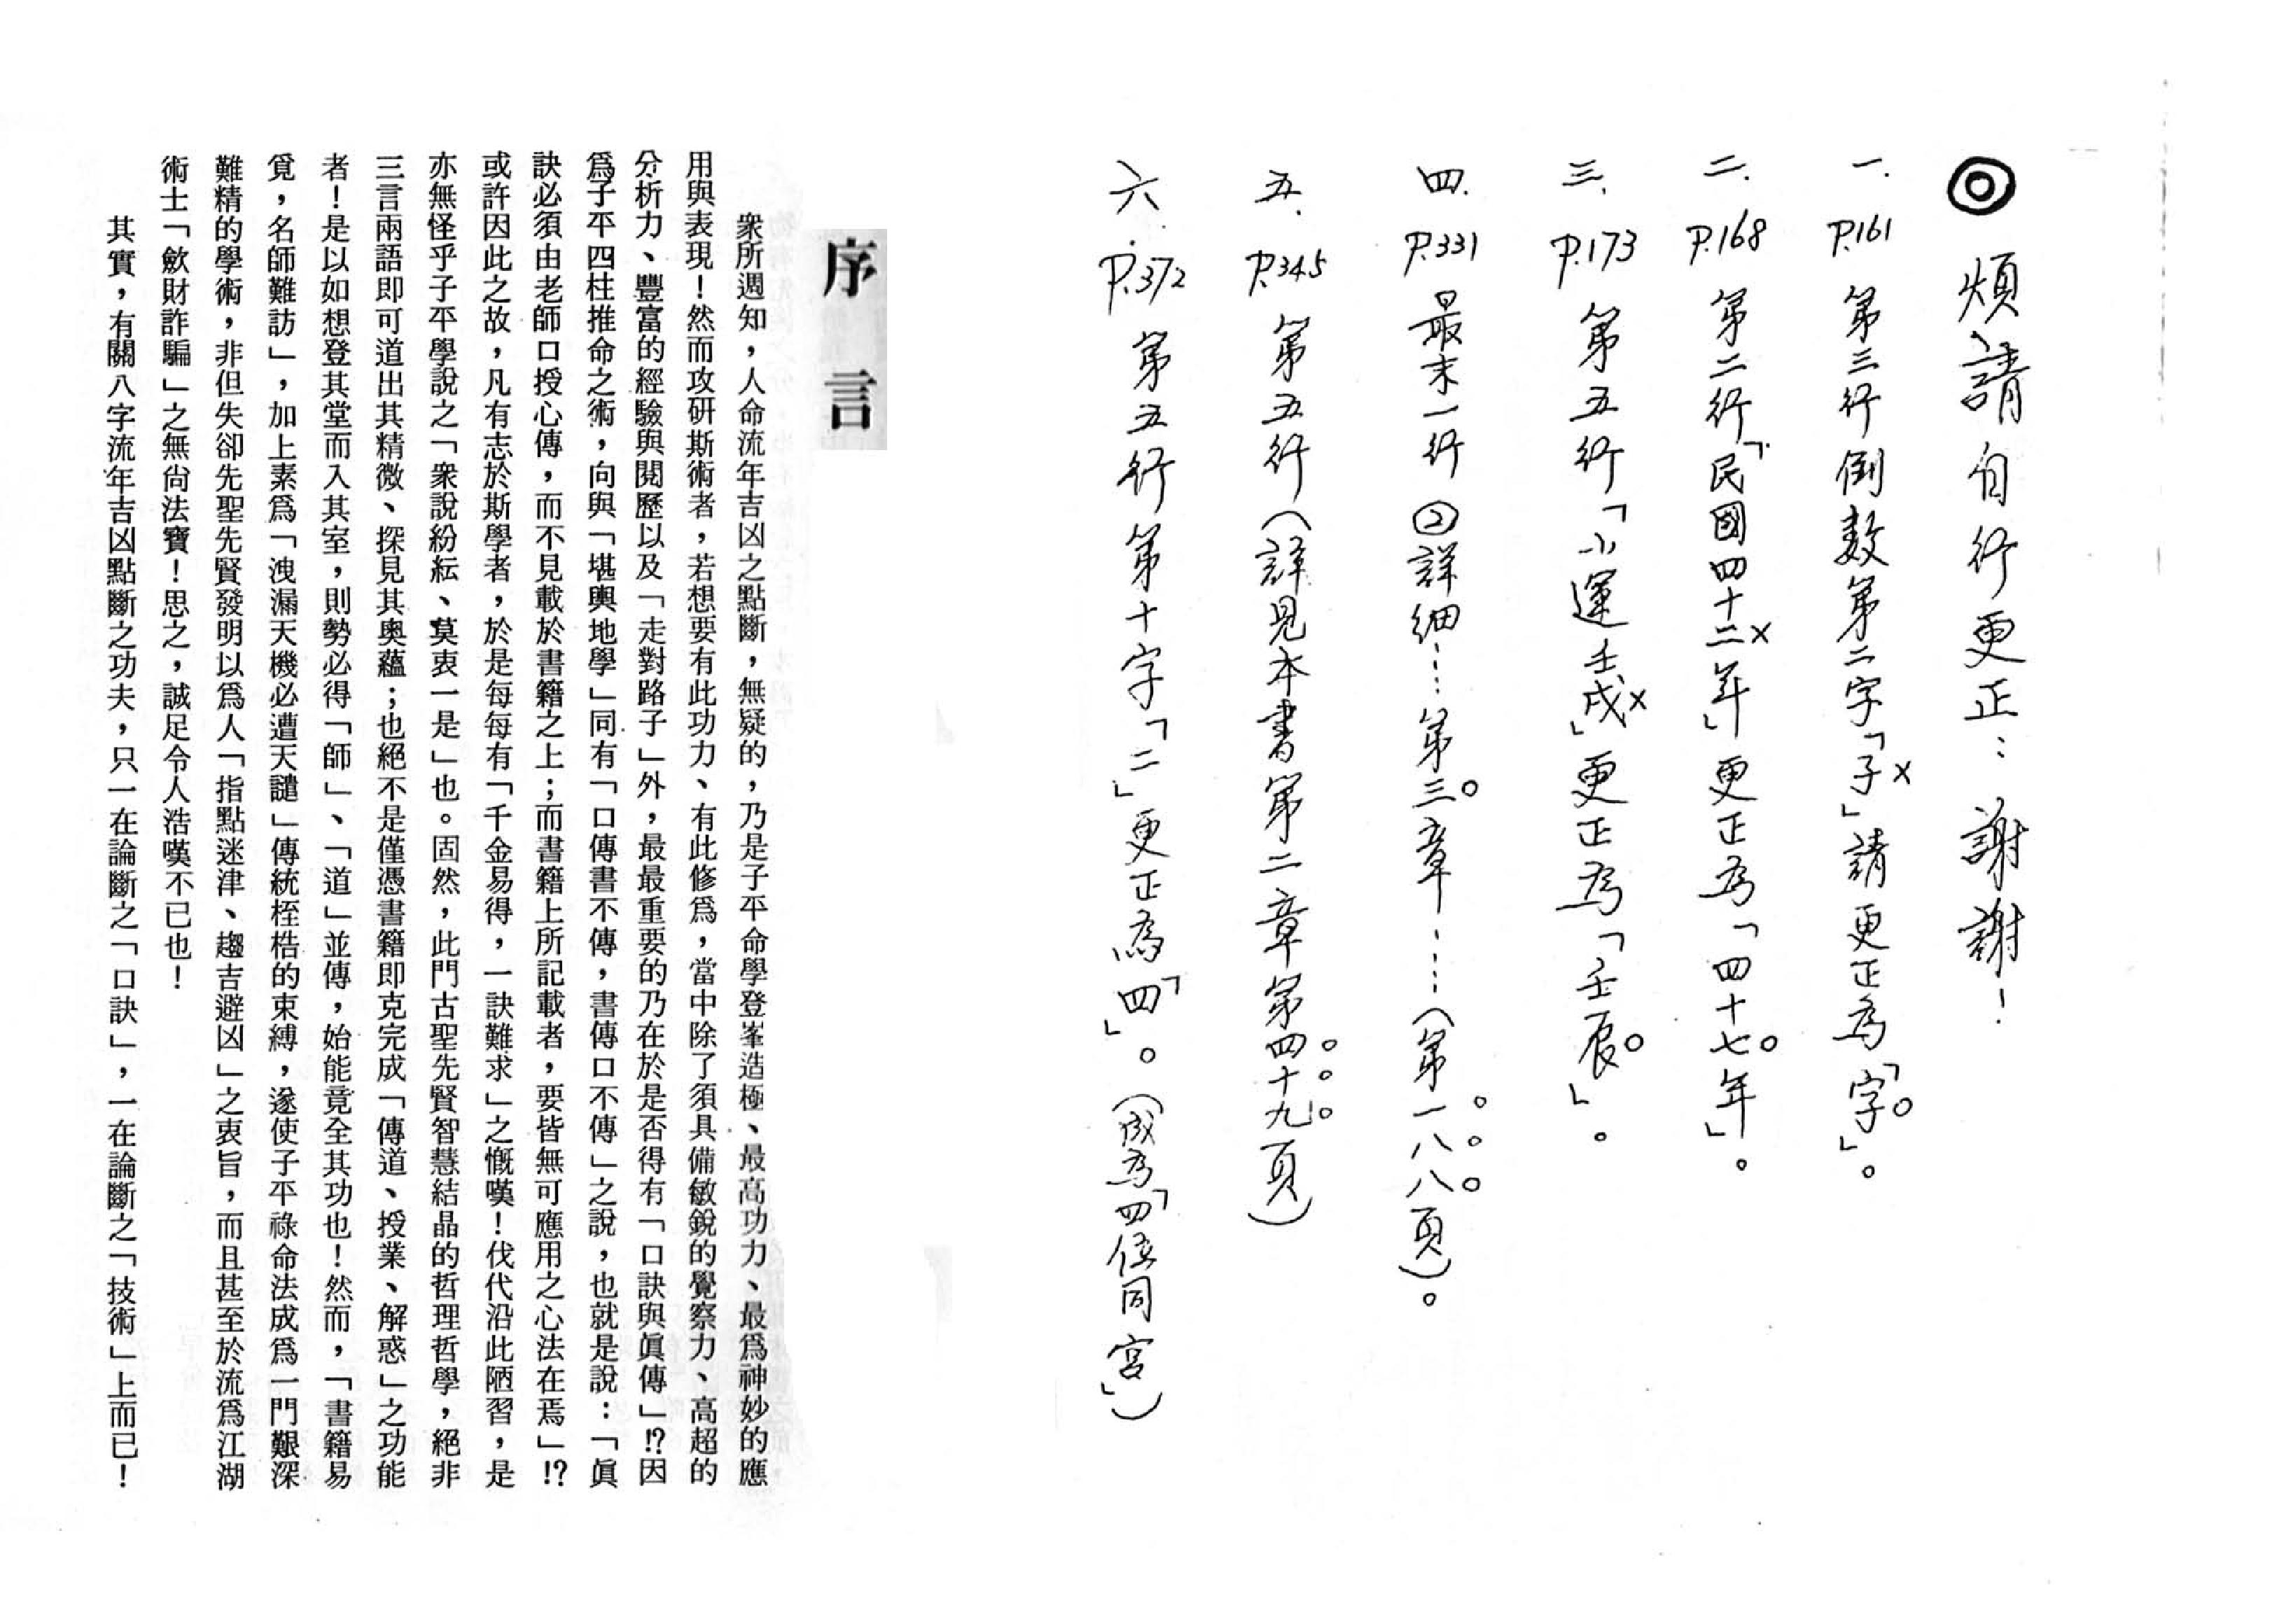 ◎煩請自行更正：謝謝！
一．P.161 第三行倒数第二字「子×」請更正為「字○」。
二．P.168 第二行「民國四十二×年」更正為「四十七○年」。
三．P.173 第五行「小運壬戌×」更正為「壬辰○」。
四．P.331 最末一行②詳細……第三○章……（第一○八○八○頁）。
五．P.345 第五行（詳見本書第二章第四○十○九○頁）
六．P.372 第五行第十字「二」更正為「四」。（成為「四位同宮」）
序言
衆所週知，人命流年吉凶之點斷，無疑的，乃是子平命學登峯造極、最高功力、最爲神妙的應
用與表現！然而攻研斯術者，若想要有此功力、有此修爲，當中除了須具備敏銳的覺察力、高超的
分析力、豐富的經驗與閱歷以及「走對路子」外，最最重要的乃在於是否得有「口訣與眞傳」!?因
爲子平四柱推命之術，向與「堪輿地學」同有「口傳書不傳，書傳口不傳」之說，也就是說：「眞
訣必須由老師口授心傳，而不見載於書籍之上；而書籍上所記載者，要皆無可應用之心法在焉」!?
或許因此之故，凡有志於斯學者，於是每每有「千金易得，一訣難求」之慨嘆！伐代沿此陋習，是
亦無怪乎子平學說之「衆說紛紜、莫衷一是」也。固然，此門古聖先賢智慧結晶的哲理哲學，絕非
三言兩語即可道出其精微、探見其奧蘊；也絕不是僅憑書籍即克完成「傳道、授業、解惑」之功能
者！是以如想登其堂而入其室，則勢必得「師」、「道」並傳，始能竟全其功也！然而，「書籍易
覓，名師難訪」，加上素爲「洩漏天機必遭天譴」傳統桎梏的束縛，遂使子平祿命法成爲一門艱深
難精的學術，非但失卻先聖先賢發明以爲人「指點迷津、趨吉避凶」之衷旨，而且甚至於流爲江湖
術士「歛財詐騙」之無尙法寶！思之，誠足令人浩嘆不已也！
其實，有關八字流年吉凶點斷之功夫，只一在論斷之「口訣」，一在論斷之「技術」上而已！